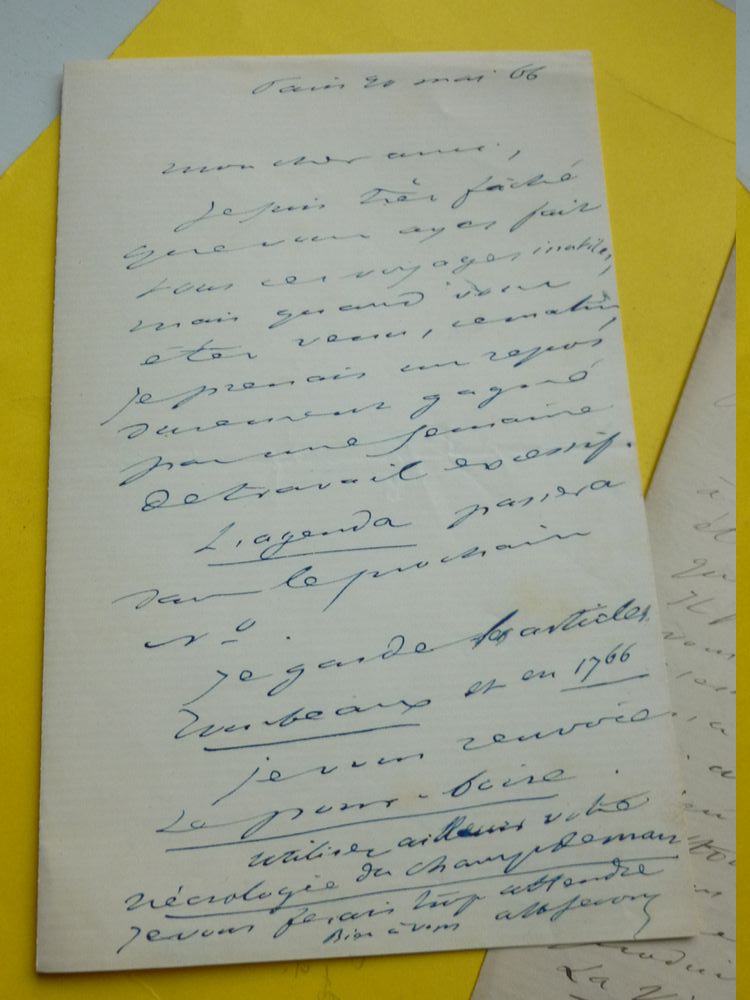 Paris 20 mai 66
mon cher ami,
Je suis très fâché
que vous ayez fait
tous ces voyages inutiles,
mais quand vous
êtes venu, ce matin,
je prenais un repos
durement gagné
par une semaine
de travail excessif.
L'agenda passera
dans le prochain
No.
Je garde les articles
Tombeaux et en 1766
je vous renvoie
Le pour-boire.
utilisez ailleurs votre
nécrologie du champ de mars
Je vous ferais trop attendre
Bien à vous